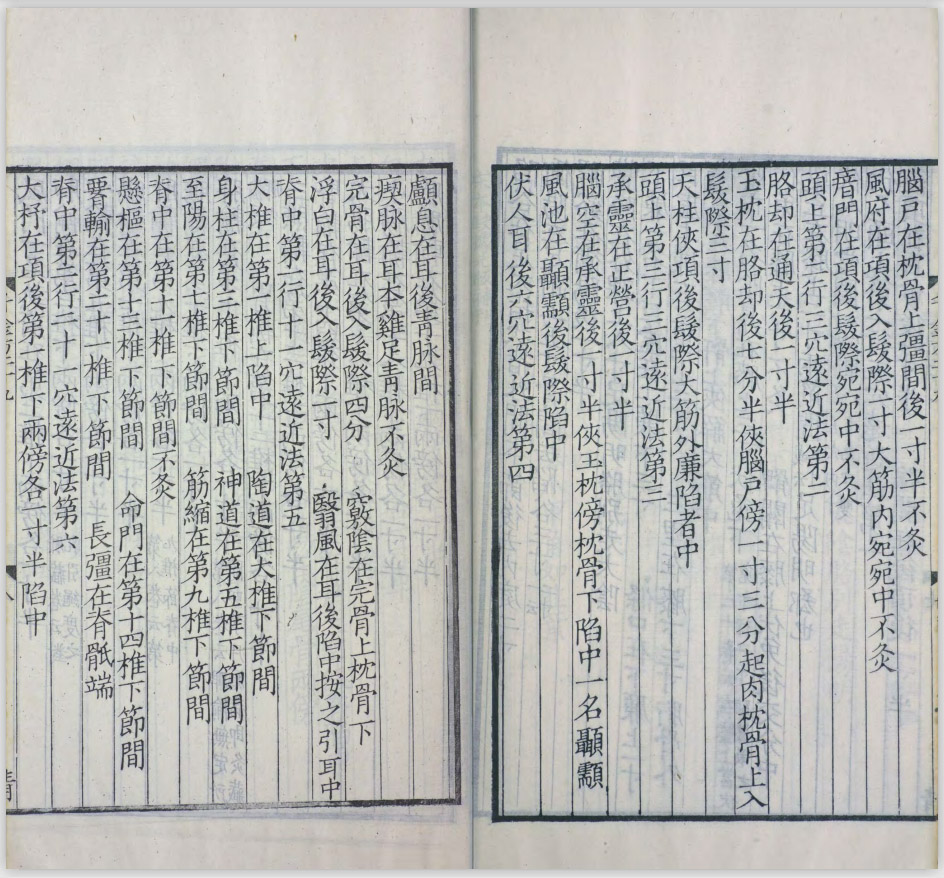 腦戸在枕骨上彊間後一寸半不灸
風府在項後入髮際一寸大筋内宛宛中不灸
瘖門在項後髮際宛宛中不灸
頭上第二行三穴遠近法第二
胳却在通天後一寸半
玉枕在胳却後七分半俠腦戸傍一寸三分起肉枕骨上入
髮際三寸
天柱俠項後髮際大筋外廉陷者中
頭上第三行三穴遠近法第三
承靈在正營後一寸半
腦空在承靈後一寸半俠玉枕傍枕骨下陷中一名顳顬
風池在顳顬後髮際陷中
伏人耳後六穴遠近法第四
顱息在耳後靑脉間
瘈脉在耳本雞足靑脉不灸
完骨在耳後入髮際四分 竅陰在完骨上枕骨下
浮白在耳後入髮際一寸 翳風在耳後陷中按之引耳中
脊中第一行十一穴遠近法第五
大椎在第一椎上陷中 陶道在大椎下節間
身柱在第三椎下節間 神道在第五椎下節間
至陽在第七椎下節間 筋縮在第九椎下節間
脊中在第十一椎下節間不灸
懸樞在第十三椎下節間 命門在第十四椎下節間
腰輸在第二十一椎下節間 長彊在脊骶端
脊中第二行二十一穴遠近法第六
大杼在項後第一椎下兩傍各一寸半陷中